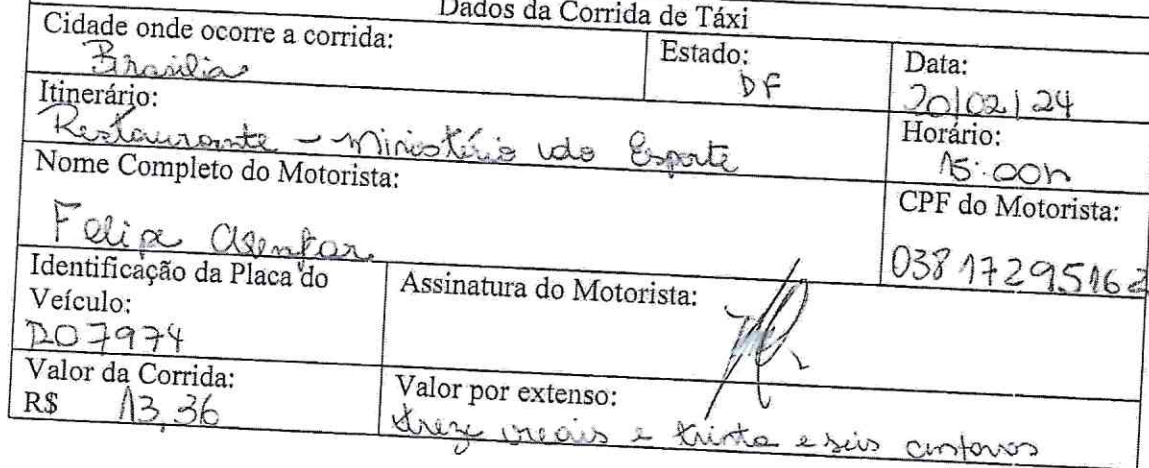 Dados da Corrida de Táxi
Cidade onde ocorre a corrida:
Brasilia
Estado:
DF
Data:
20/02/24
Itinerário:
Restaurante - Ministério do Esporte
Horário:
15:00h
Nome Completo do Motorista:
Felipe
CPF do Motorista:
03817295162
Identificação da Placa do
Veículo:
7974
Assinatura do Motorista:
Valor da Corrida:
R$ 13,36
Valor por extenso:
treze reais e trinta e seis centavos